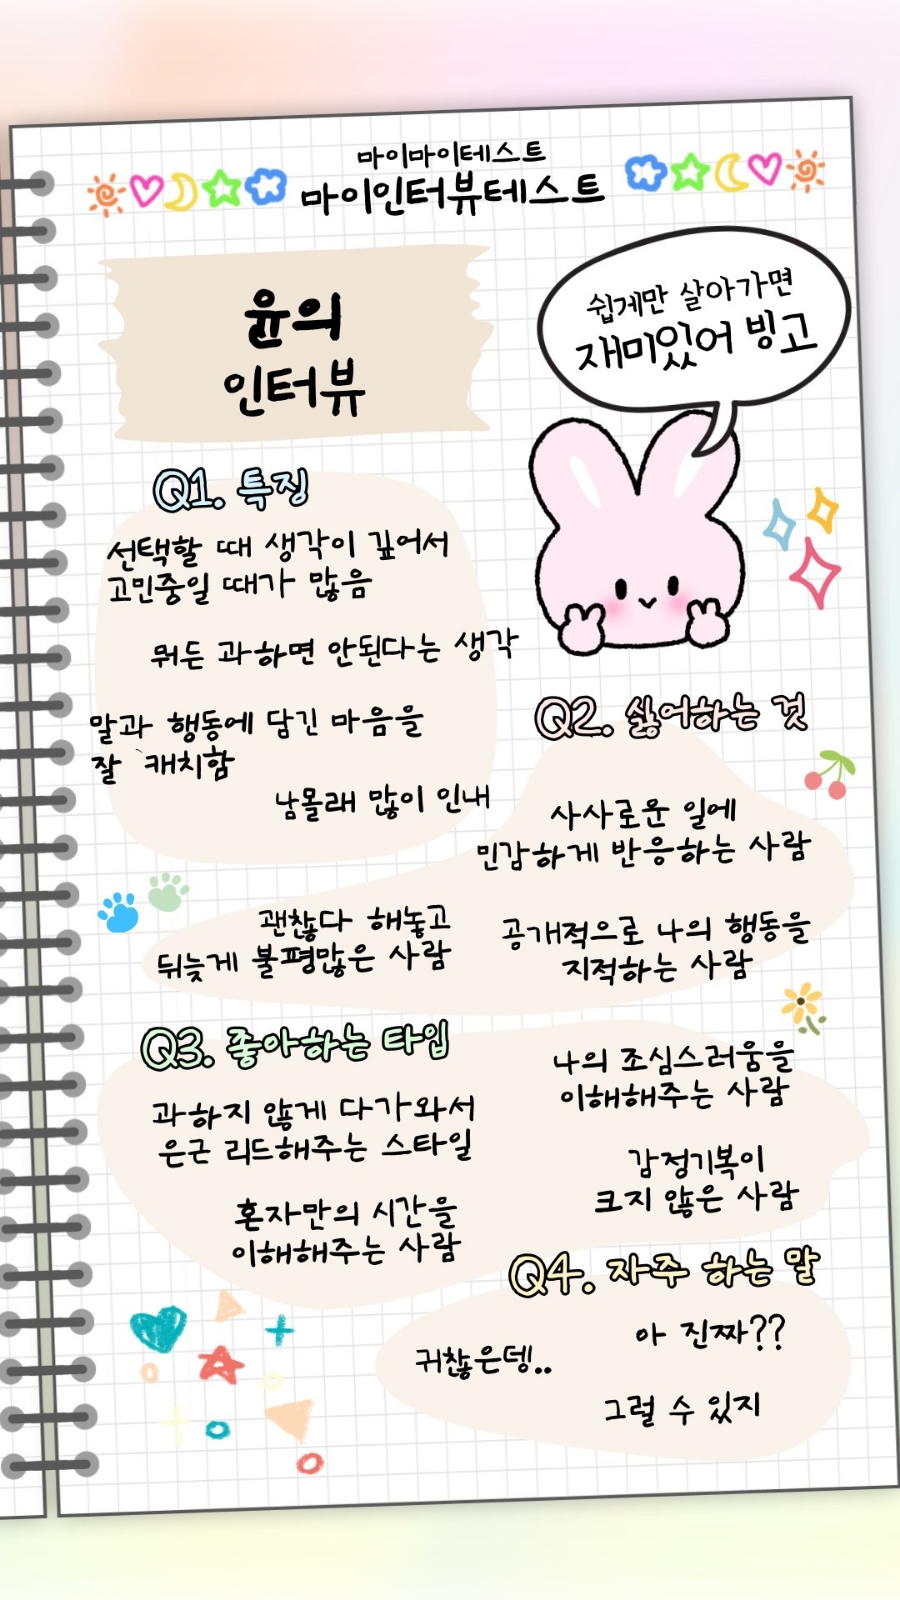 마이마이테스트
마이인터뷰테스트
윤의
인터뷰
쉽게만 살아가면
재미있어 빙고
Q1. 특징
선택할 때 생각이 깊어서
고민중일 때가 많음
뭐든 과하면 안된다는 생각
말과 행동에 담긴 마음을
잘 캐치함
남몰래 많이 인내
Q2. 싫어하는 것
사사로운 일에
민감하게 반응하는 사람
괜찮다 해놓고
뒤늦게 불평많은 사람
공개적으로 나의 행동을
지적하는 사람
Q3. 좋아하는 타입
과하지 않게 다가와서
은근 리드해주는 스타일
나의 조심스러움을
이해해주는 사람
혼자만의 시간을
이해해주는 사람
감정기복이
크지 않은 사람
Q4. 자주 하는 말
아 진짜??
귀찮은뎅..
그럴 수 있지